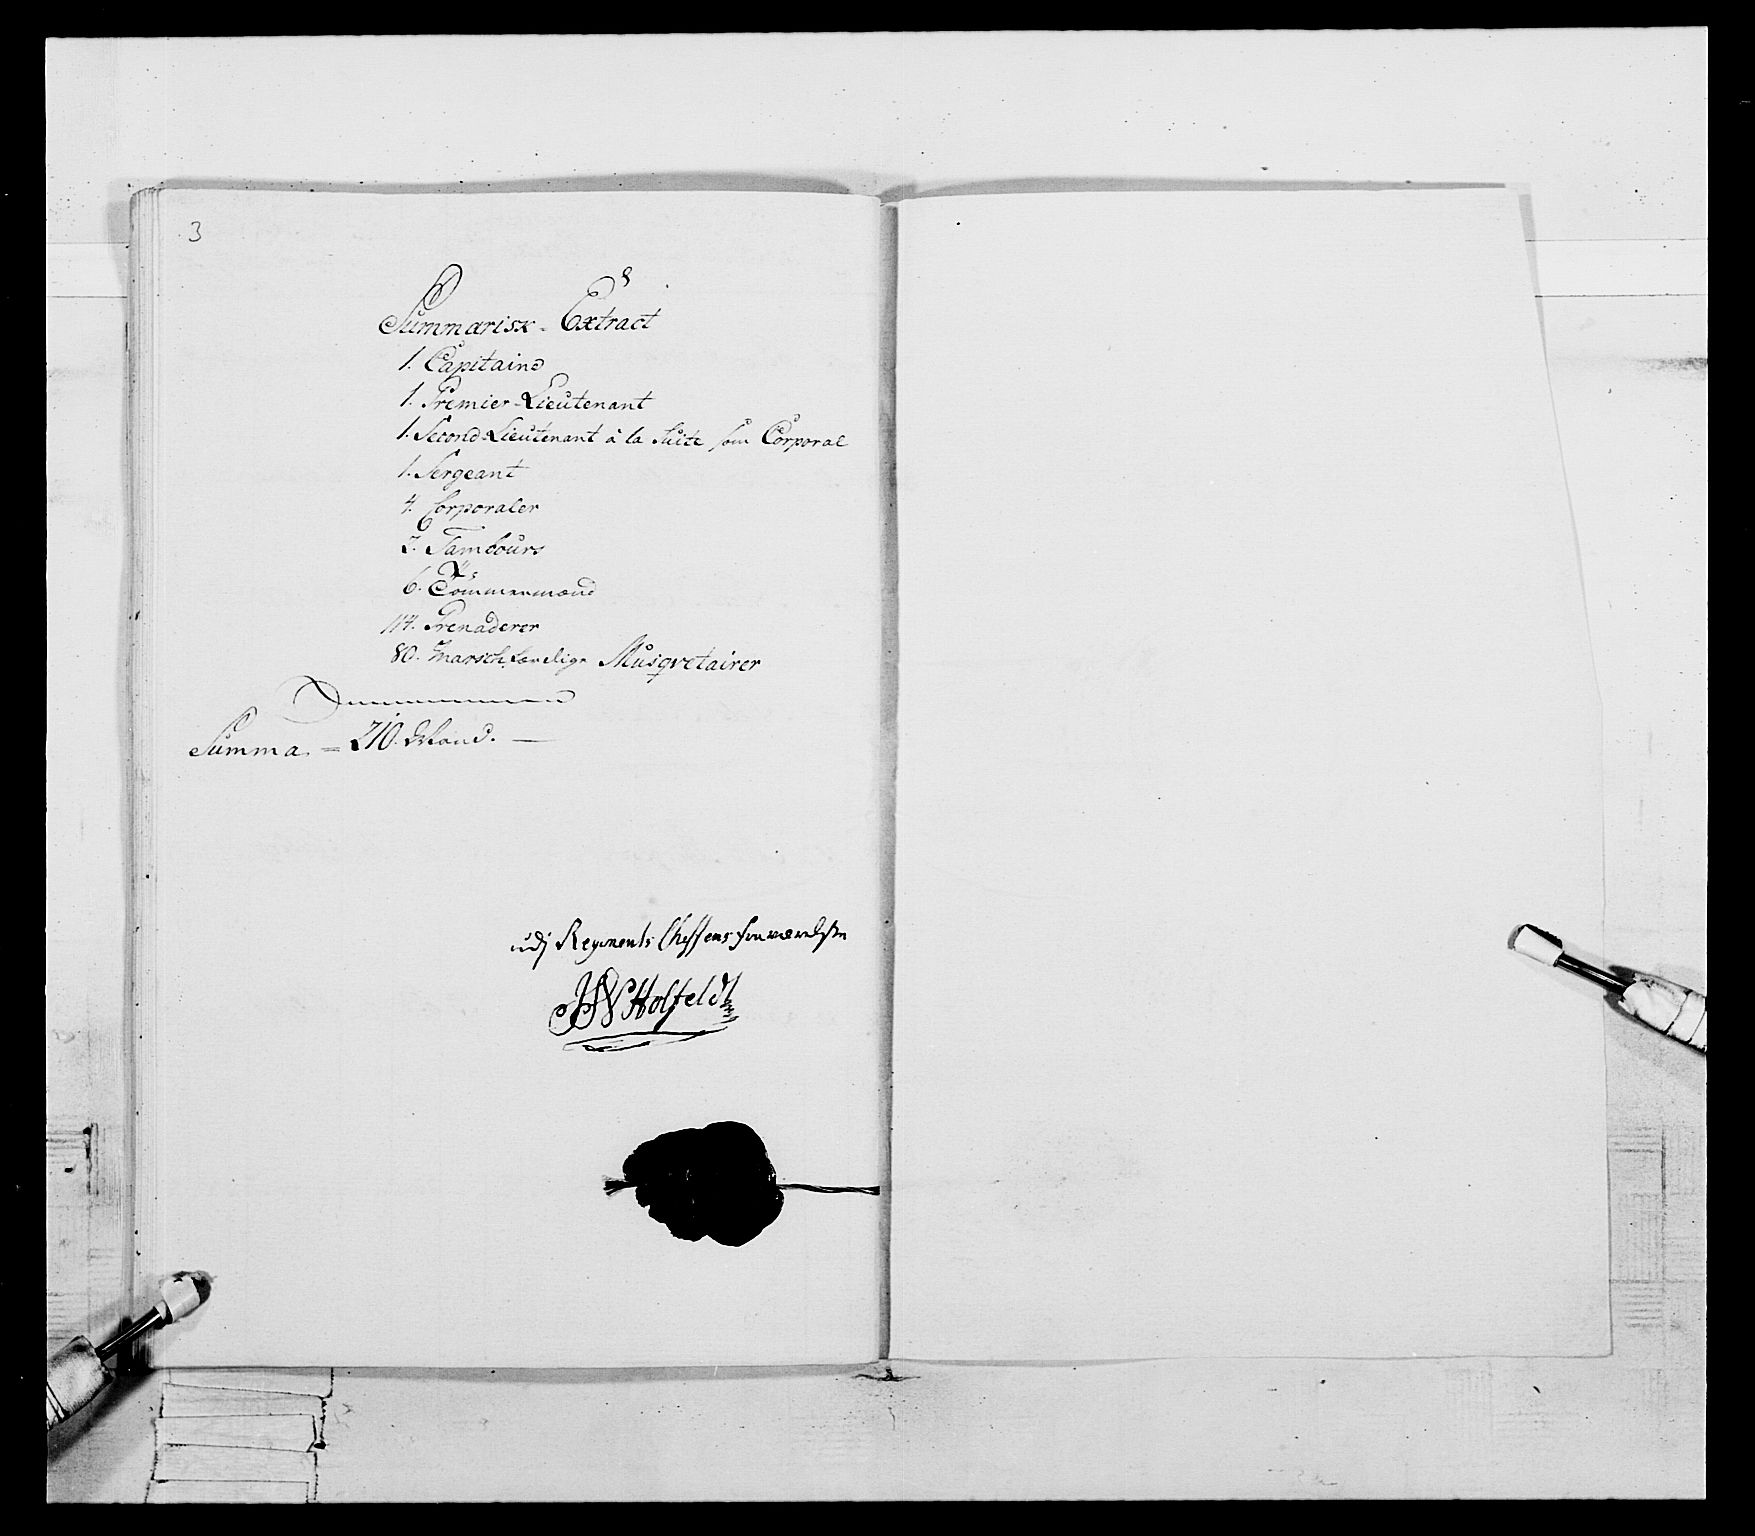 3
Summarisk-Extract
1. Capitaine
1. Premier-Lieutenant
1. Second-Lieutenant à la Suite som Corporal
1. Sergeant
4. Corporaler
2. Tambours
6. Tömmermænd
114. Grenaderer
80. Marschfærdige Musqvetairer
Summa = 210. Mand. —
udj Regiments Cheffens fraværelse
Holfeldt